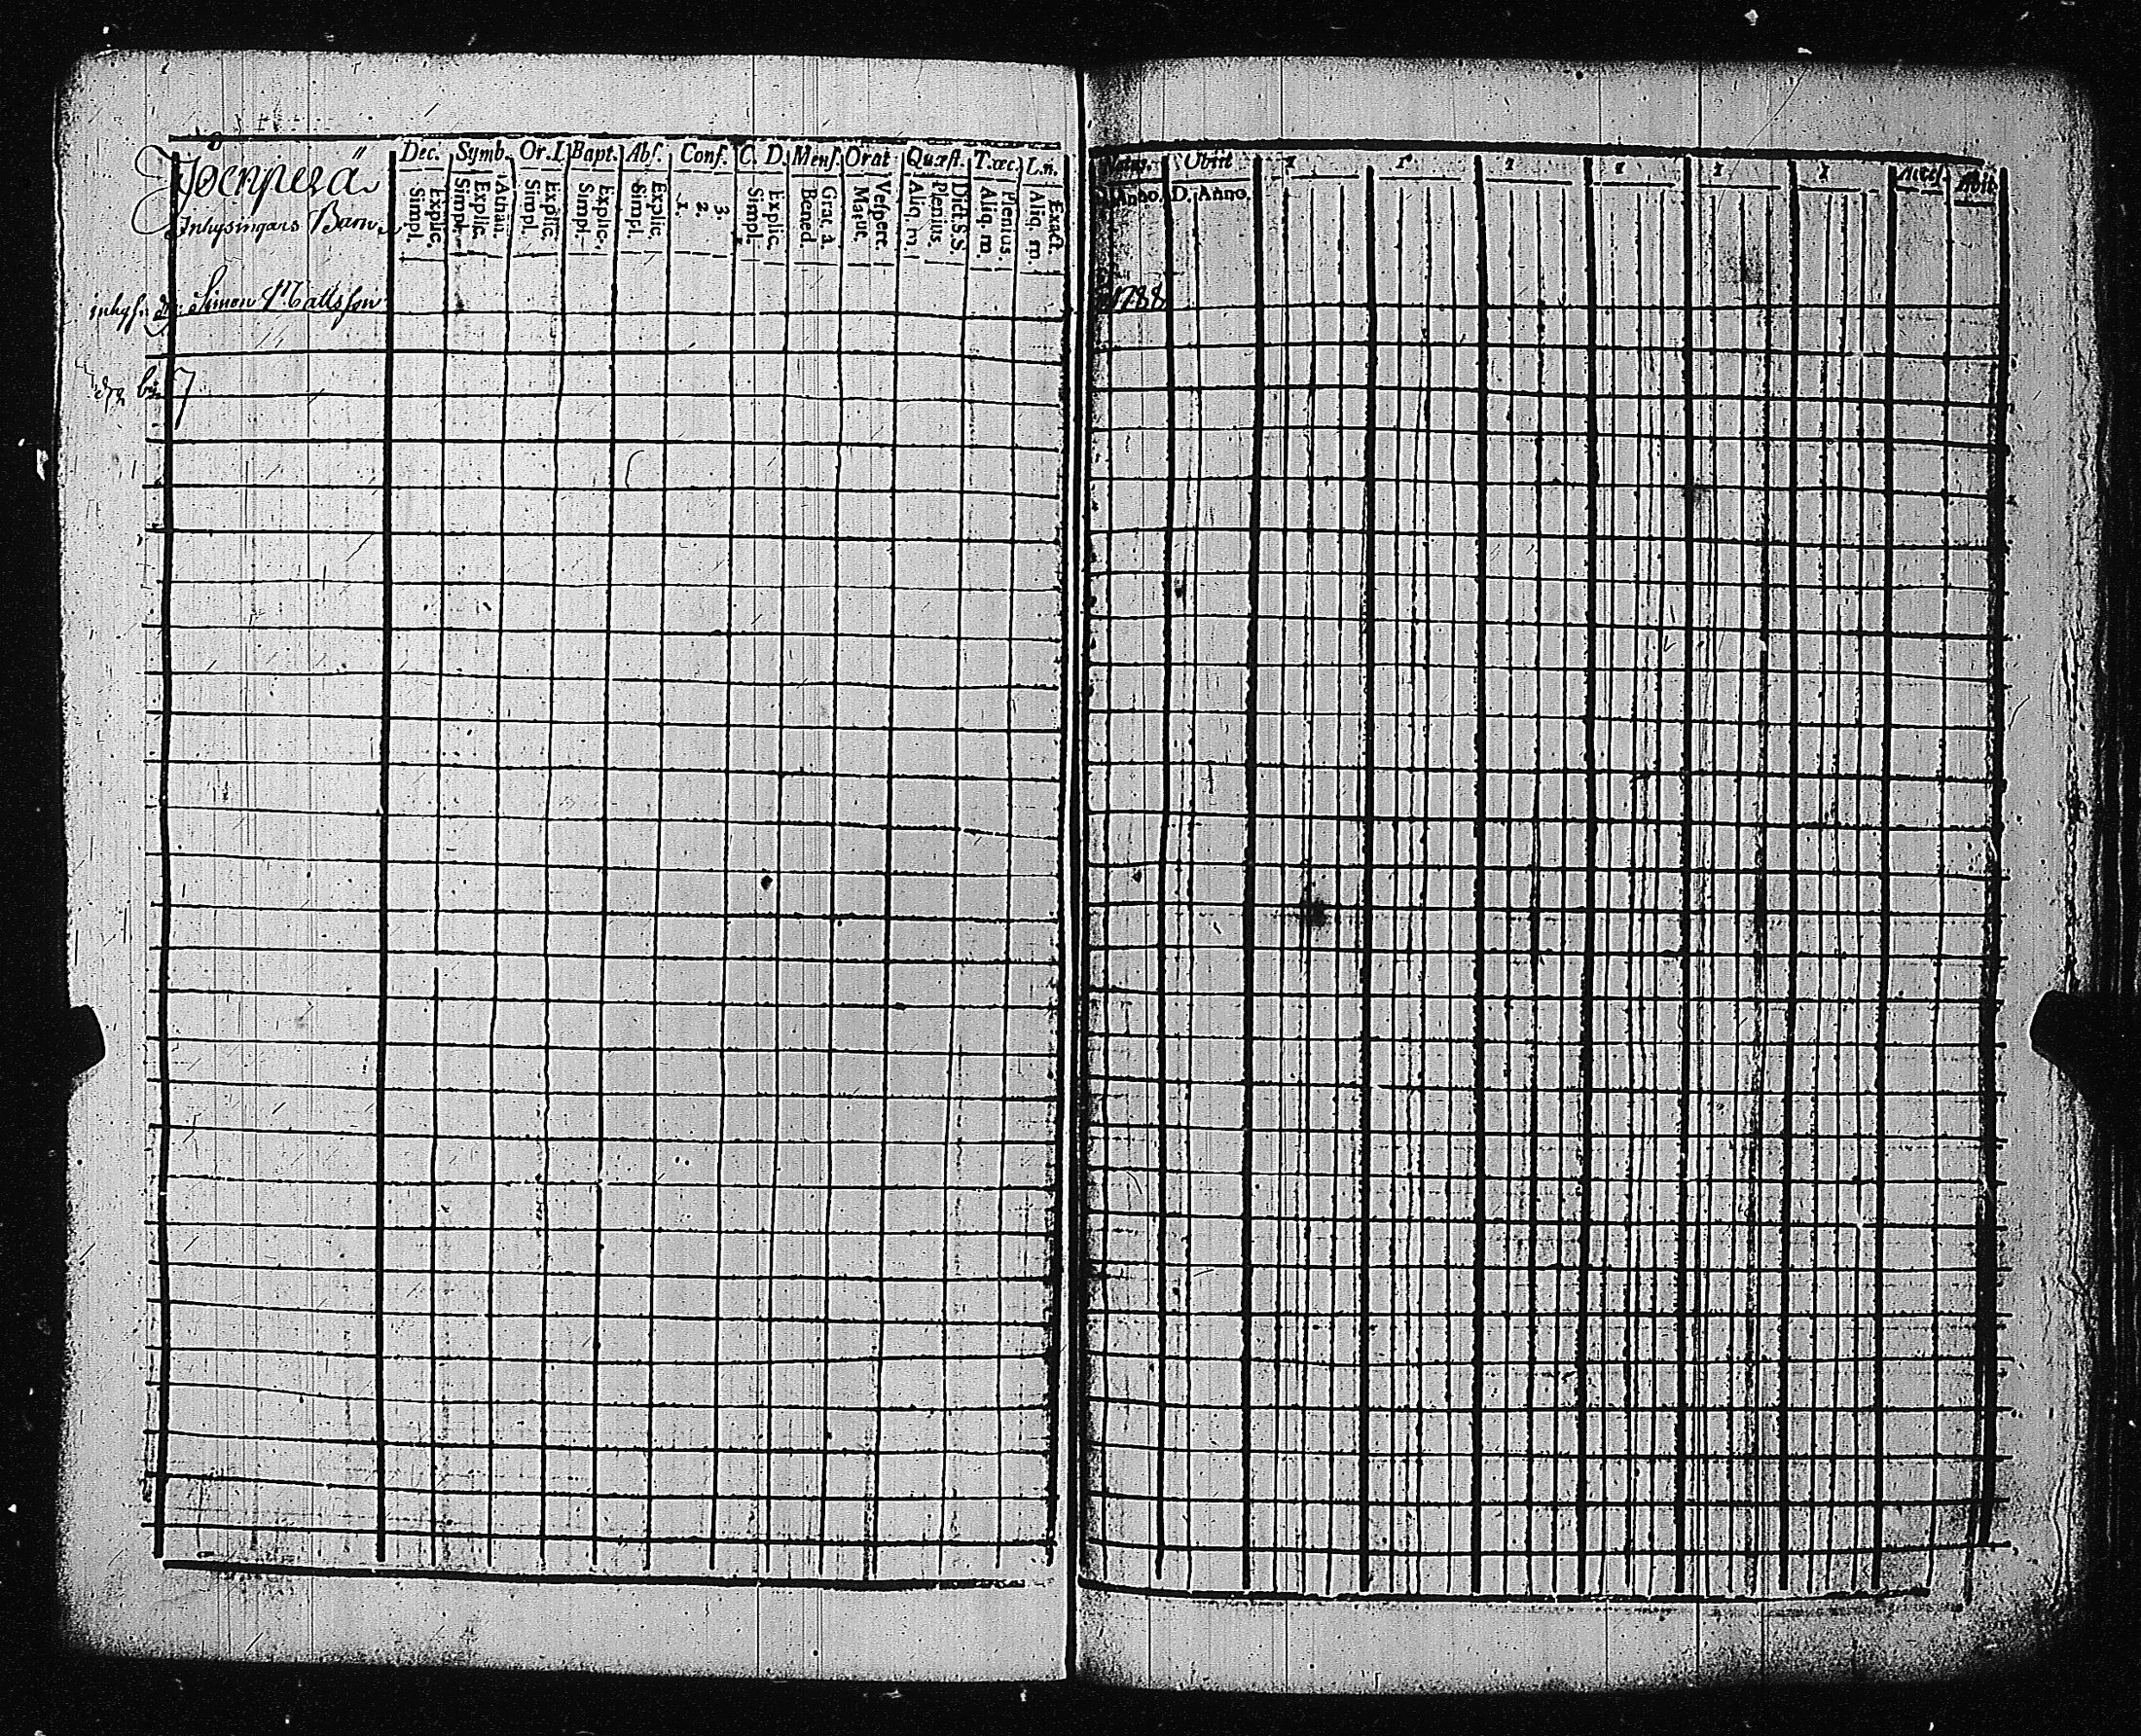 Jocnperä
Inhysingars Barn
Dec. Symb. Or. I. Bapt. Abs. Conf. C. D. Mens. Orat Quæst. T.œc. L.n.
Simpl. Explic. Simpl. Explic. Athan. Simpl. Explic. Simpl. Explic. Simpl. Explic. 1. 2. 3. Simpl. Explic. Bened. Grat. a. Matut. Vespere. Aliq. m. Plenius. Dict. S.S. Aliq. m. Plenius. Aliq. m. Exact.
inhys. Simon Mattsson
Natus. Obiit 1 1 1 1 1 1 Acces. Abit
Anno. D. Anno.
1788